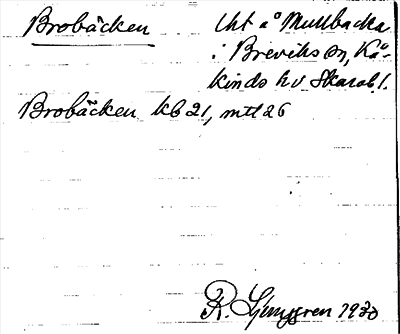 Brobäcken
Uht å Mullbacka
i Breviks sn, Kå-
kinds hd Skarab l.
Brobäcken kb 21, mtl 26
R. Ljunggren 1930